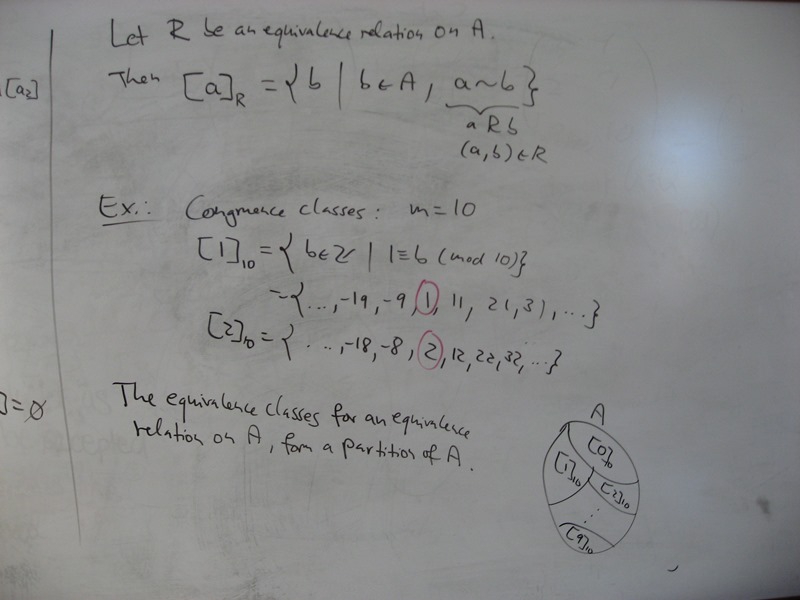 Let R be an equivalence relation on A.
[a₂]
Then [a]_R = { b | b ∈ A, a ~ b }
a R b
(a, b) ∈ R
Ex.: Congruence classes: m = 10
[1]₁₀ = { b ∈ ℤ | 1 ≡ b (mod 10)}
= { ..., -19, -9, 1, 11, 21, 31, ... }
[2]₁₀ = { ..., -18, -8, 2, 12, 22, 32, ... }
] = ∅
The equivalence classes for an equivalence
relation on A, form a partition of A.
A
[0]₁₀
[1]₁₀ [2]₁₀
⋮
[9]₁₀